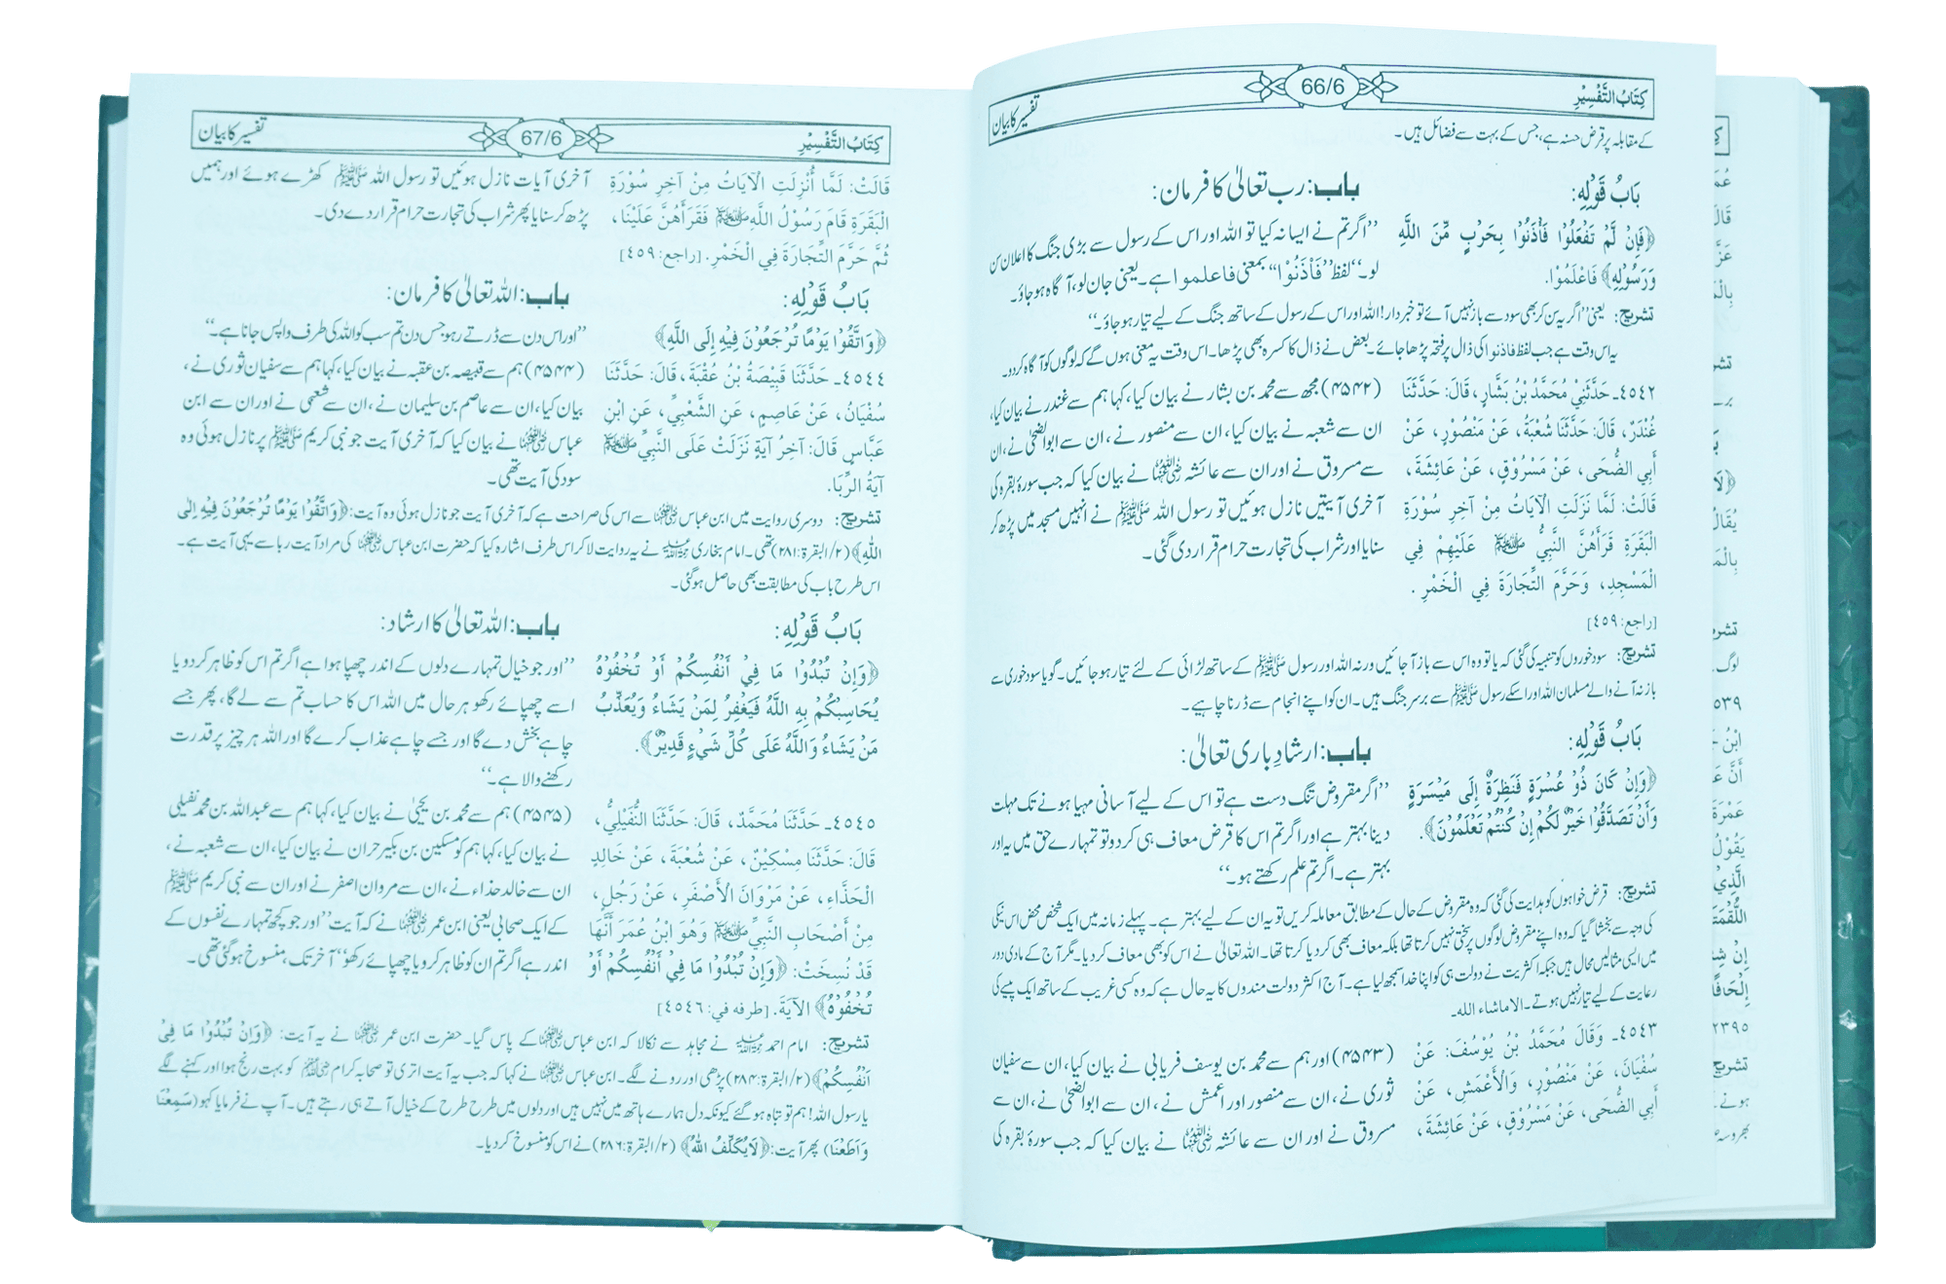 كِتَابُ التَّفْسِيْرِ 66/6 تفسیر کا بیان
کے مقابلہ پر قرض حسنہ ہے، جس کے بہت سے فضائل ہیں۔
بَابُ قَوْلِهِ:
﴿فَإِنْ لَّمْ تَفْعَلُوْا فَأْذَنُوْا بِحَرْبٍ مِّنَ اللَّهِ
وَرَسُوْلِهِ﴾ فَاعْلَمُوْا.
باب: رب تعالیٰ کا فرمان:
’’اگر تم نے ایسا نہ کیا تو اللہ اور اس کے رسول سے بڑی جنگ کا اعلان سن
لو۔‘‘ لفظ ’’فَأْذَنُوْا‘‘ بمعنی فاعلموا ہے۔ یعنی جان لو، آگاہ ہو جاؤ۔
تشریح: یعنی ’’اگر یہ سن کر بھی سود سے باز نہیں آئے تو خبردار! اللہ اور اس کے رسول کے ساتھ جنگ کے لیے تیار ہو جاؤ۔‘‘
یہ اس وقت ہے جب لفظ فاذنوا کی ذال پر فتحہ پڑھا جائے۔ بعض نے ذال کا کسرہ بھی پڑھا۔ اس وقت یہ معنی ہوں گے کہ لوگوں کو آگاہ کر دو۔
٤٥٤٢۔ حَدَّثَنِيْ مُحَمَّدُ بْنُ بَشَّارٍ، قَالَ: حَدَّثَنَا
غُنْدَرٌ، قَالَ: حَدَّثَنَا شُعْبَةُ، عَنْ مَنْصُوْرٍ، عَنْ
أَبِي الضُّحَى، عَنْ مَسْرُوْقٍ، عَنْ عَائِشَةَ،
قَالَتْ: لَمَّا نَزَلَتِ الْآيَاتُ مِنْ آخِرِ سُوْرَةِ
الْبَقَرَةِ قَرَأَهُنَّ النَّبِيُّ ﷺ عَلَيْهِمْ فِي
الْمَسْجِدِ، وَحَرَّمَ التِّجَارَةَ فِي الْخَمْرِ.
[راجع: ٤٥٩]
(۴۵۴۲) مجھ سے محمد بن بشار نے بیان کیا، کہا ہم سے غندر نے بیان کیا،
ان سے شعبہ نے بیان کیا، ان سے منصور نے، ان سے ابوالضحیٰ نے، ان
سے مسروق نے اور ان سے عائشہ ؓ نے بیان کیا کہ جب سورۂ بقرہ کی
آخری آیتیں نازل ہوئیں تو رسول اللہ ﷺ نے انہیں مسجد میں پڑھ کر
سنایا اور شراب کی تجارت حرام قرار دی گئی۔
تشریح: سود خوروں کو تنبیہ کی گئی کہ یا تو وہ اس سے باز آ جائیں ورنہ اللہ اور رسول ﷺ کے ساتھ لڑائی کے لئے تیار ہو جائیں۔ گویا سود خوری سے
باز نہ آنے والے مسلمان اللہ اور اسکے رسول ﷺ سے برسر جنگ ہیں۔ ان کو اپنے انجام سے ڈرنا چاہیے۔
بَابُ قَوْلِهِ:
﴿وَإِنْ كَانَ ذُوْ عُسْرَةٍ فَنَظِرَةٌ إِلَى مَيْسَرَةٍ
وَأَنْ تَصَدَّقُوْا خَيْرٌ لَّكُمْ إِنْ كُنْتُمْ تَعْلَمُوْنَ﴾.
باب: ارشادِ باری تعالیٰ:
’’اگر مقروض تنگ دست ہے تو اس کے لیے آسانی مہیا ہونے تک مہلت
دینا بہتر ہے اور اگر تم اس کا قرض معاف ہی کر دو تو تمہارے حق میں یہ اور
بہتر ہے۔ اگر تم علم رکھتے ہو۔‘‘
تشریح: قرض خواہوں کو ہدایت کی گئی کہ وہ مقروض کے حال کے مطابق معاملہ کریں تو یہ ان کے لیے بہتر ہے۔ پہلے زمانہ میں ایک شخص محض اس نیکی
کی وجہ سے بخشا گیا کہ وہ اپنے مقروض لوگوں پر سختی نہیں کرتا تھا بلکہ معاف بھی کر دیا کرتا تھا۔ اللہ تعالیٰ نے اس کو بھی معاف کر دیا۔ مگر آج کے مادی دور
میں ایسی مثالیں محال ہیں جبکہ اکثریت نے دولت ہی کو اپنا خدا سمجھ لیا ہے۔ آج اکثر دولت مندوں کا یہ حال ہے کہ وہ کسی غریب کے ساتھ ایک پیسے کی
رعایت کے لیے تیار نہیں ہوتے۔ الا ماشاء الله۔
٤٥٤٣۔ وَقَالَ مُحَمَّدُ بْنُ يُوْسُفَ: عَنْ
سُفْيَانَ، عَنْ مَنْصُوْرٍ، وَالْأَعْمَشِ، عَنْ
أَبِي الضُّحَى، عَنْ مَسْرُوْقٍ، عَنْ عَائِشَةَ،
(۴۵۴۳) اور ہم سے محمد بن یوسف فریابی نے بیان کیا، ان سے سفیان
ثوری نے، ان سے منصور اور اعمش نے، ان سے ابوالضحیٰ نے، ان سے
مسروق نے اور ان سے عائشہ ؓ نے بیان کیا کہ جب سورۂ بقرہ کی
كِتَابُ التَّفْسِيْرِ 67/6 تفسیر کا بیان
قَالَتْ: لَمَّا أُنْزِلَتِ الْآيَاتُ مِنْ آخِرِ سُوْرَةِ
الْبَقَرَةِ قَامَ رَسُوْلُ اللَّهِ ﷺ فَقَرَأَهُنَّ عَلَيْنَا،
ثُمَّ حَرَّمَ التِّجَارَةَ فِي الْخَمْرِ. [راجع: ٤٥٩]
آخری آیات نازل ہوئیں تو رسول اللہ ﷺ کھڑے ہوئے اور ہمیں
پڑھ کر سنایا پھر شراب کی تجارت حرام قرار دے دی۔
بَابُ قَوْلِهِ:
﴿وَاتَّقُوْا يَوْمًا تُرْجَعُوْنَ فِيْهِ إِلَى اللَّهِ﴾
باب: اللہ تعالیٰ کا فرمان:
’’اور اس دن سے ڈرتے رہو جس دن تم سب کو اللہ کی طرف واپس جانا ہے۔‘‘
٤٥٤٤۔ حَدَّثَنَا قَبِيْصَةُ بْنُ عُقْبَةَ، قَالَ: حَدَّثَنَا
سُفْيَانُ، عَنْ عَاصِمٍ، عَنِ الشَّعْبِيِّ، عَنِ ابْنِ
عَبَّاسٍ قَالَ: آخِرُ آيَةٍ نَزَلَتْ عَلَى النَّبِيِّ ﷺ
آيَةُ الرِّبَا.
(۴۵۴۴) ہم سے قبیصہ بن عقبہ نے بیان کیا، کہا ہم سے سفیان ثوری نے،
بیان کیا، ان سے عاصم بن سلیمان نے، ان سے شعبی نے اور ان سے ابن
عباس ؓ نے بیان کیا کہ آخری آیت جو نبی کریم ﷺ پر نازل ہوئی وہ
سود کی آیت تھی۔
تشریح: دوسری روایت میں ابن عباس ؓ سے اس کی صراحت ہے کہ آخری آیت جو نازل ہوئی وہ آیت: ﴿وَاتَّقُوْا يَوْمًا تُرْجَعُوْنَ فِيْهِ اِلَى
اللّٰهِ﴾ (۲/البقرۃ:۲۸۱) تھی۔ امام بخاری ؒ نے یہ روایت لا کر اس طرف اشارہ کیا کہ حضرت ابن عباس ؓ کی مراد آیت ربا سے یہی آیت ہے۔
اس طرح باب کی مطابقت بھی حاصل ہو گئی۔
بَابُ قَوْلِهِ:
﴿وَإِنْ تُبْدُوْا مَا فِيْ أَنْفُسِكُمْ أَوْ تُخْفُوْهُ
يُحَاسِبْكُمْ بِهِ اللَّهُ فَيَغْفِرُ لِمَنْ يَشَاءُ وَيُعَذِّبُ
مَنْ يَشَاءُ وَاللَّهُ عَلَى كُلِّ شَيْءٍ قَدِيْرٌ﴾.
باب: اللہ تعالیٰ کا ارشاد:
’’اور جو خیال تمہارے دلوں کے اندر چھپا ہوا ہے اگر تم اس کو ظاہر کر دو یا
اسے چھپائے رکھو ہر حال میں اللہ اس کا حساب تم سے لے گا، پھر جسے
چاہے بخش دے گا اور جسے چاہے عذاب کرے گا اور اللہ ہر چیز پر قدرت
رکھنے والا ہے۔‘‘
٤٥٤٥۔ حَدَّثَنَا مُحَمَّدٌ، قَالَ: حَدَّثَنَا النُّفَيْلِيُّ،
قَالَ: حَدَّثَنَا مِسْكِيْنٌ، عَنْ شُعْبَةَ، عَنْ خَالِدٍ
الْحَذَّاءِ، عَنْ مَرْوَانَ الْأَصْفَرِ، عَنْ رَجُلٍ،
مِنْ أَصْحَابِ النَّبِيِّ ﷺ وَهُوَ ابْنُ عُمَرَ أَنَّهَا
قَدْ نُسِخَتْ: ﴿وَإِنْ تُبْدُوْا مَا فِيْ أَنْفُسِكُمْ أَوْ
تُخْفُوْهُ﴾ الْآيَةَ. [طرفه في: ٤٥٤٦]
(۴۵۴۵) ہم سے محمد بن یحییٰ نے بیان کیا، کہا ہم سے عبداللہ بن محمد نفیلی
نے بیان کیا، کہا ہم کو مسکین بن بکیر حران نے بیان کیا، ان سے شعبہ نے،
ان سے خالد حذاء نے، ان سے مروان اصفر نے اور ان سے نبی کریم ﷺ
کے ایک صحابی یعنی ابن عمر ؓ نے کہ آیت ’’اور جو کچھ تمہارے نفسوں کے
اندر ہے اگر تم ان کو ظاہر کرو یا چھپائے رکھو‘‘ آخر تک، منسوخ ہو گئی تھی۔
تشریح: امام احمد ؒ نے مجاہد سے نکالا کہ ابن عباس ؓ کے پاس گیا۔ حضرت ابن عمر ؓ نے یہ آیت: ﴿وَاِنْ تُبْدُوْا مَا فِيْ
اَنْفُسِكُمْ﴾ (۲/البقرۃ:۲۸۴) پڑھی اور رونے لگے۔ ابن عباس ؓ نے کہا کہ جب یہ آیت اتری تو صحابہ کرام ؓ کو بہت رنج ہوا اور کہنے لگے
یا رسول اللہ! ہم تو تباہ ہو گئے کیونکہ دل ہمارے ہاتھ میں نہیں ہیں اور دلوں میں طرح طرح کے خیال آتے ہی رہتے ہیں۔ آپ نے فرمایا کہو (سَمِعْنَا
وَاَطَعْنَا) پھر آیت: ﴿لَا يُكَلِّفُ اللّٰهُ﴾ (۲/البقرۃ:۲۸۶) نے اس کو منسوخ کر دیا۔